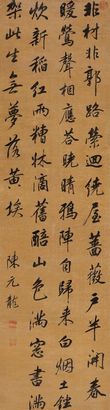 非村非郭路縈迴繞屋薔薇戶半開春
暖鶯聲相應答晚晴鴉陣自歸來白烟土銼
炊新稻紅雨糟牀滴舊醅山色滿窗書滿
架此生無夢落黃埃
陳元龍